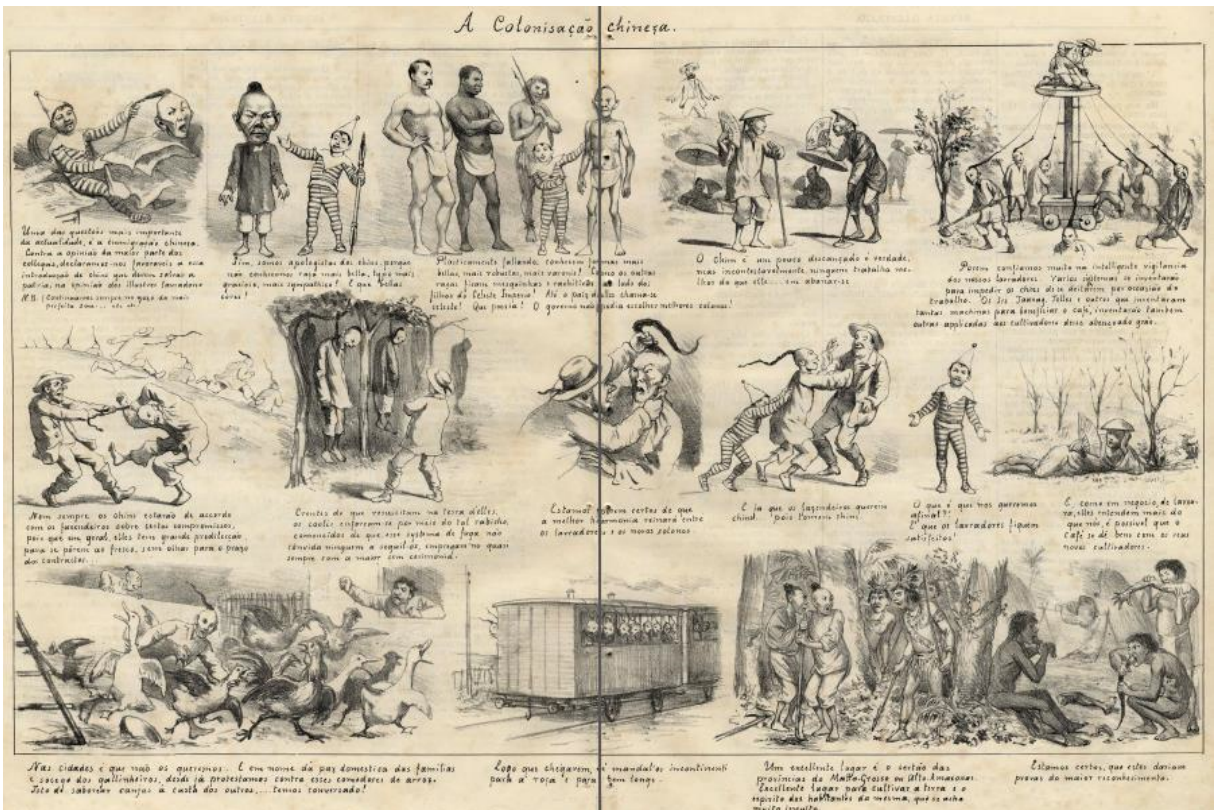 A Colonisação chineza.
Uma das questões mais importantes
da actualidade, é a emmigração chineza.
Contra a opinião da maior parte dos
collegas, declaramo-nos favoraveis a essa
introducção de chins que devem salvar a
patria, na opinião dos illustres lavradores
N.B. Continuamos sempre no gozo da mais
perfeita
Sim, somos apologistas dos chins, porque
não conhecemos raça mais bella, typos mais
graciosos, mais sympathicos! E que bellas
côres!
Plasticamente fallando, conhecem formas mais
bellas, mais robustas, mais varonis! Como as outras
raças ficam mesquinhas e rachiticas ao lado dos
filhos do Celeste Imperio! Até o paiz delles chama-se
celeste! Que poesia! O governo não podia escolher melhores colonos!
O Chim é um pouco descançado é verdade,
mas incontestavelmente, ninguem trabalha me-
lhor do que elle... em abanar-se
Porem contiamos muito na intelligente vigilancia
dos nossos lavradores. Varios systemas se inventarão
para impedir os chins de se deitarem por occasião do
trabalho. Os Srs Taunay, Telles e outros que inventaram
tantas machinas para beneficiar o café, inventarão tambem
outras applicadas aos cultivadores desse abençoado grão.
Nem sempre os chins estarão de accordo
com os fazendeiros sobre certos compromissos,
pois que em geral, elles tem grande predilecção
para se pôrem ao fresco, sem olhar para o prazo
dos contractos...
Crentes de que resuscitam na terra delles,
os coolis enforcam-se por meio do tal rabicho,
convencidos de que esse systema de fuga não
convida ninguem a seguil-os, empregam-no quasi
sempre sem a maior sem ceremonia.
Estamos porem certos de que
a melhor harmonia reinará entre
os lavradores e os novos colonos.
E já que os fazendeiros querem
chins, pois tomem chins!
O que é que nós queremos
afinal?!
E que os lavradores fiquem
satisfeitos!
E, como em negocio de lavou-
ra, elles entendem mais do
que nós, é possivel que o
Café se dê bem com os seus
novos cultivadores.
Nas cidades é que não os queremos. E em nome da paz domestica das familias
e socego dos gallinheiros, desde já protestamos contra esses comedores de arroz.
Isto de saborear canjas á custa dos outros,... temos conversado!
Logo que chegarem, é mandal-os incontinenti
para a roça e para bem longe.
Um excellente lugar é o sertão das
provincias do Matto-Grosso ou Alto Amazonas.
Excellente lugar para cultivar a terra e o
espirito dos habitantes da mesma, que se acha
muito inculto.
Estamos certos, que estes dariam
provas do maior reconhecimento.